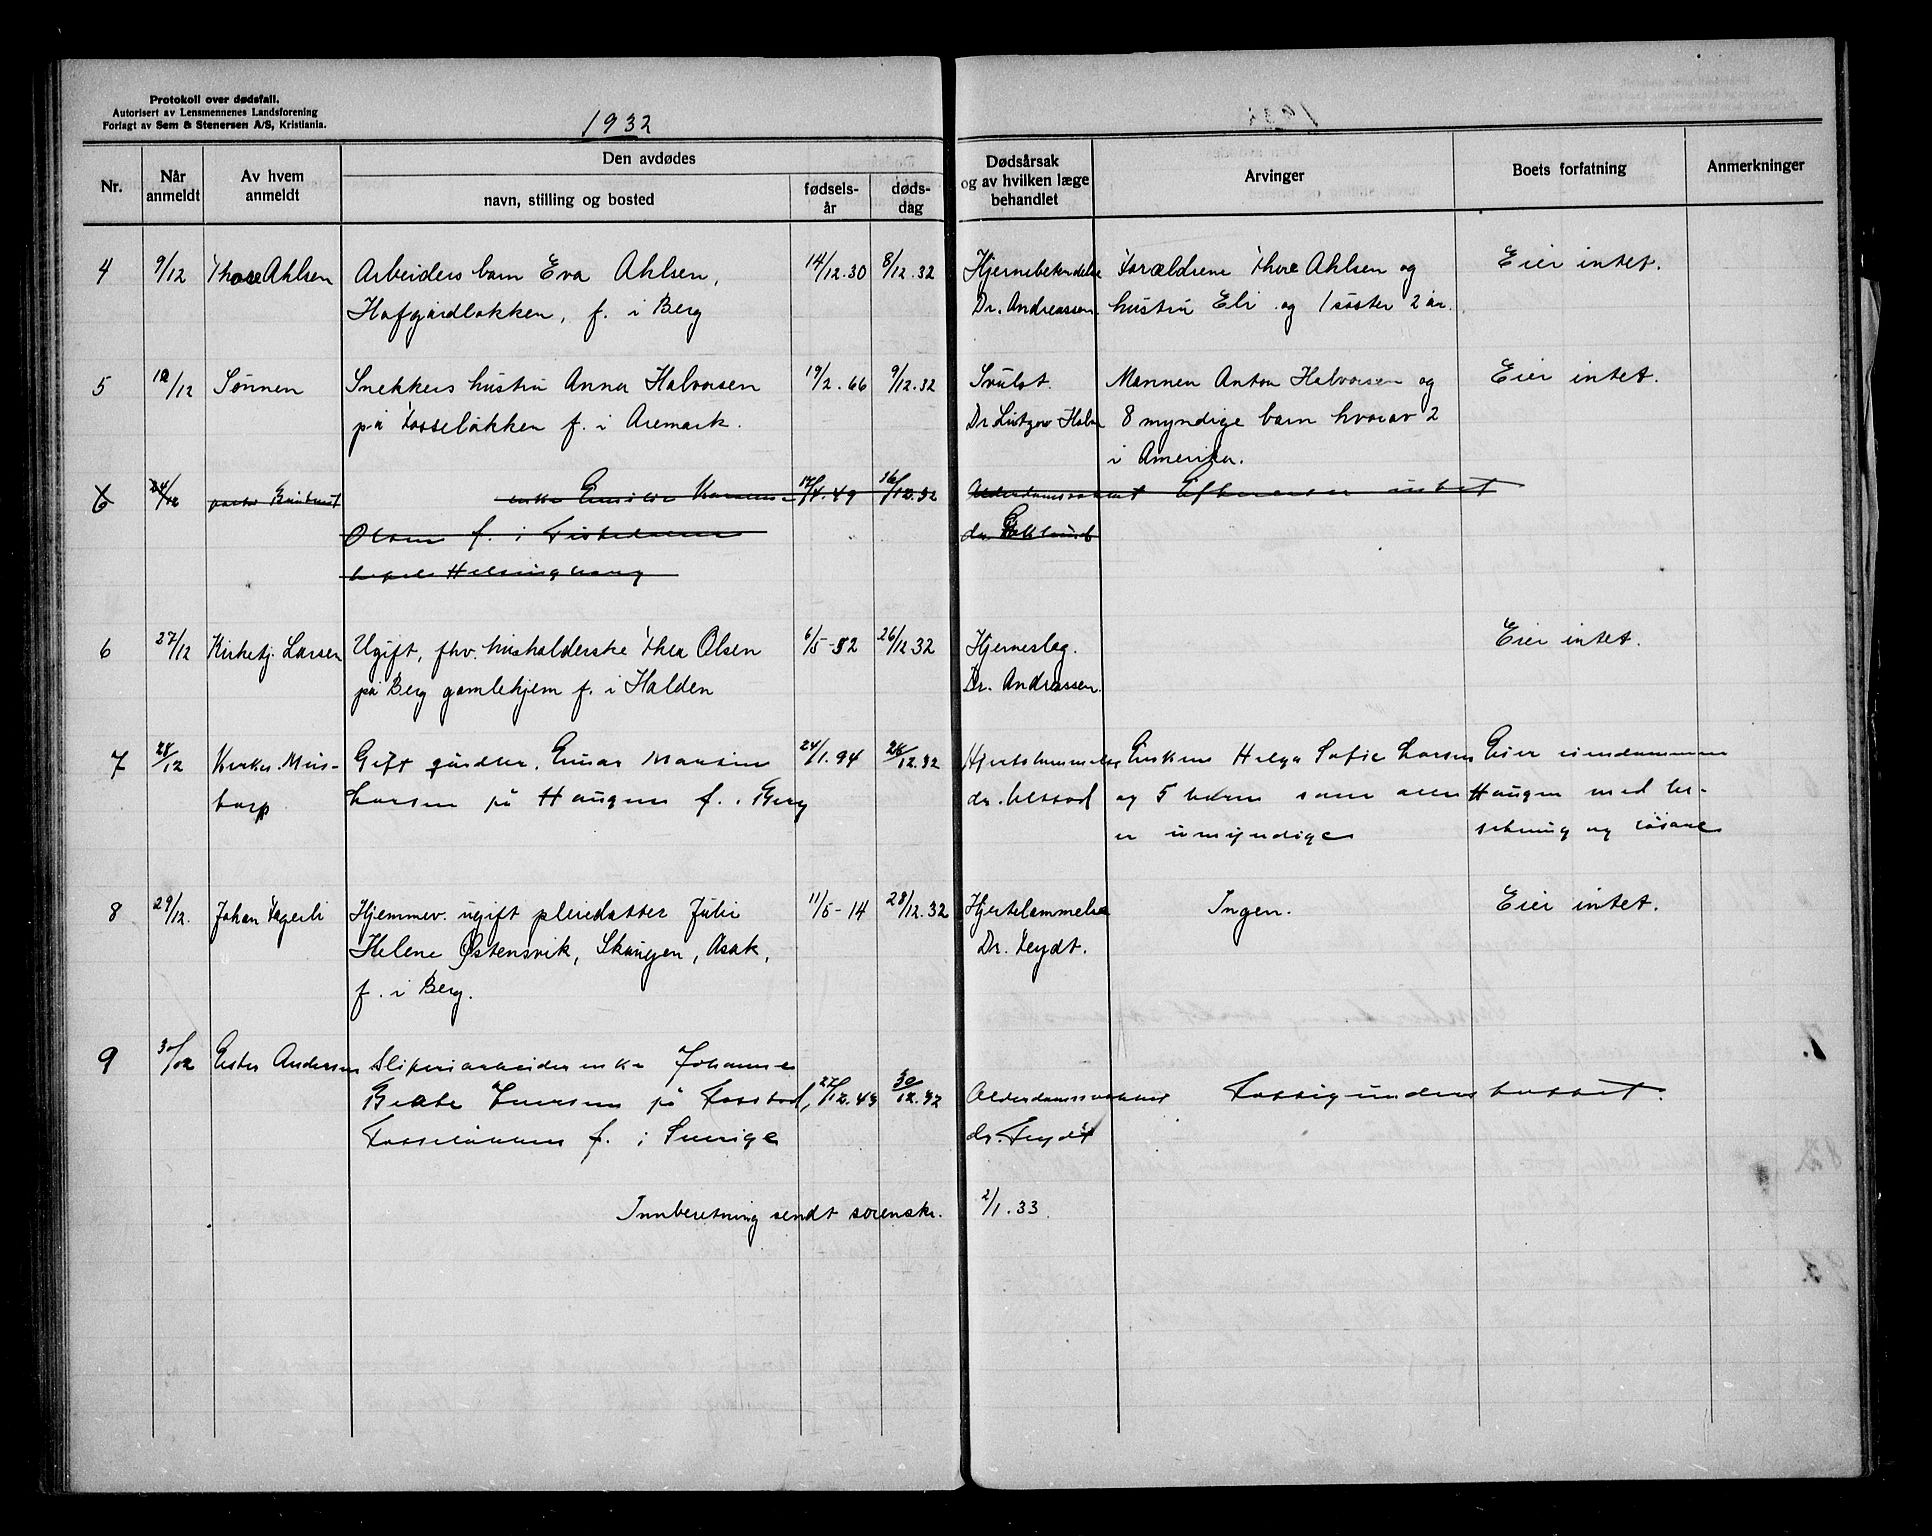 Protokoll over dødsfall.
Autorisert av Lensmennenes Landsforening
Forlagt av Sem & Stenersen A/S, Kristiania.
1932
Nr.
Når anmeldt
Av hvem anmeldt
Den avdødes
navn, stilling og bosted
fødsels-
år
døds-
dag
Dødsårsak
og av hvilken læge
behandlet
Arvinger
Boets forfatning
Anmerkninger
4 9/12 Thore Ahlsen Arbeiders barn Eva Ahlsen, 14/12.30 8/12.32 Hjernebetendelse Forældrene Thore Ahlsen og Eier intet.
Hafgårdløkken, f. i Berg Dr. Andreassen. hustru Eli og 1 søster 2 år.
5 10/12 Sønnen Snekkers hustru Anna Halvorsen 19/2.66 9/12.32 Svulst. Mannen Anton Halvorsen og Eier intet.
på Fosseløkken f. i Aremark. Dr. Lützow Holm 8 myndige barn hvorav 2
i Amerika.
6 24/12 enke 17/4.49 16/12.32 Alderdomssvakhet Efterlater intet
Olsen f. i Tistedalen dr.
6 27/12 Kirketj. Larsen Ugift, fhv. husholderske Thea Olsen 6/5-52 26/12 32 Hjerneslag. Eier intet.
på Berg gamlehjem f. i Halden Dr. Andreassen.
7 28/12 Gift gårdbr. Einar 24/1.94 26/12.32 Hjertelammelse Enken Helga Sofie Larsen Eier eiendommen
torp Larsen på Haugen f. i Berg dr. og 5 barn som alle Haugen med be-
er umyndige setning og løsøre
8 29/12. Johan Fagerli Hjemmev. ugift pleiedatter Julie 11/5-14 28/12.32 Hjertelammelse Ingen. Eier intet.
Helene Østensvik, Skaugen, Asak, Dr. Feydt.
f. i Berg.
9 30/12 Ester Andersen Sliperiarbeider enke Johanne
Beate Iversen på Fosstad, 27/12.43 30/12.32 Alderdomssvakhet Fattigunderstøttet.
Fosseløkken f. i Sverige dr. Feydt
Innberetning sendt sorenskr. 2/1.33